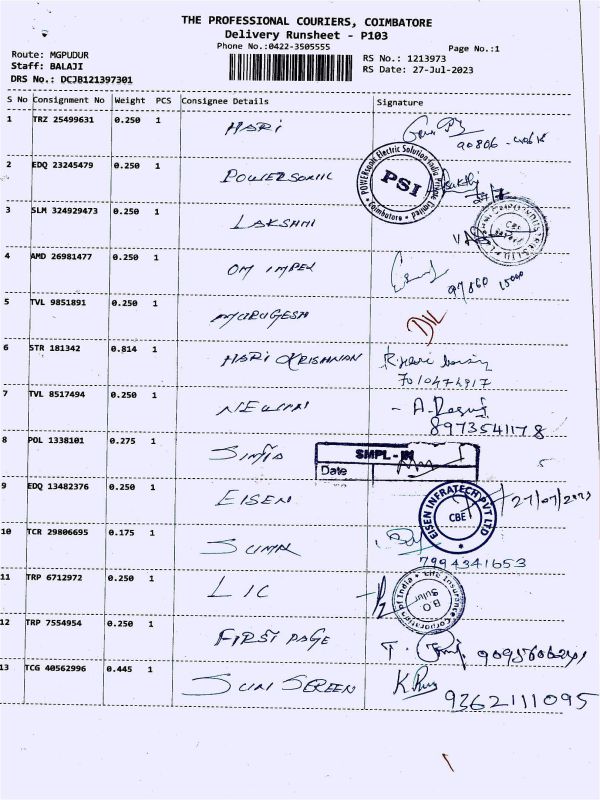 THE PROFESSIONAL COURIERS, COIMBATORE
Delivery Runsheet - P103
Phone No.:0422-3505555
Page No.:1
Route: MGPUDUR
Staff: BALAJI
DRS No.: DCJB121397301
RS No.: 1213973
RS Date: 27-Jul-2023
S No Consignment No Weight PCS Consignee Details Signature
1 TRZ 25499631 0.250 1 HARI
2 EDQ 23245479 0.250 1 POWERSONIC
POWERsonic Electric Solution India Private Limited
PSI
* Coimbatore *
3 SLM 324929473 0.250 1 LAKSHMI
4 AMD 26981477 0.250 1 OM IMPEX
97860 15000
5 TVL 9851891 0.250 1 MURUGESH
6 STR 181342 0.814 1 HARI KRISHNAN
7010474917
7 TVL 8517494 0.250 1
8973541178
8 POL 1338101 0.275 1
SMPL - IN
Date
9 EDQ 13482376 0.250 1 EISEN
EISEN INFRATECH PVT LTD
CBE
27/07/2023
10 TCR 29806695 0.175 1 SUMA
7994341653
11 TRP 6712972 0.250 1 LIC
Life Insurance Corporation of India
B.O
Sulur
12 TRP 7554954 0.250 1 FIRST PAGE
13 TCG 40562996 0.445 1 SUN SCREEN
9362111095